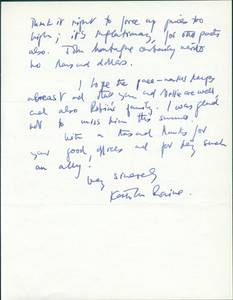 think it right to force up prices too
high; it's inflationary, for other poets
also. John Montague certainly needs
no thousand dollars.
I hope the pace-maker keeps
abreast and that you and are well
and also Robin's family. I was glad
not to miss him this summer.
With a thousand thanks for
your good offices and for being such
an ally!
Very sincerely
Kathleen Raine.